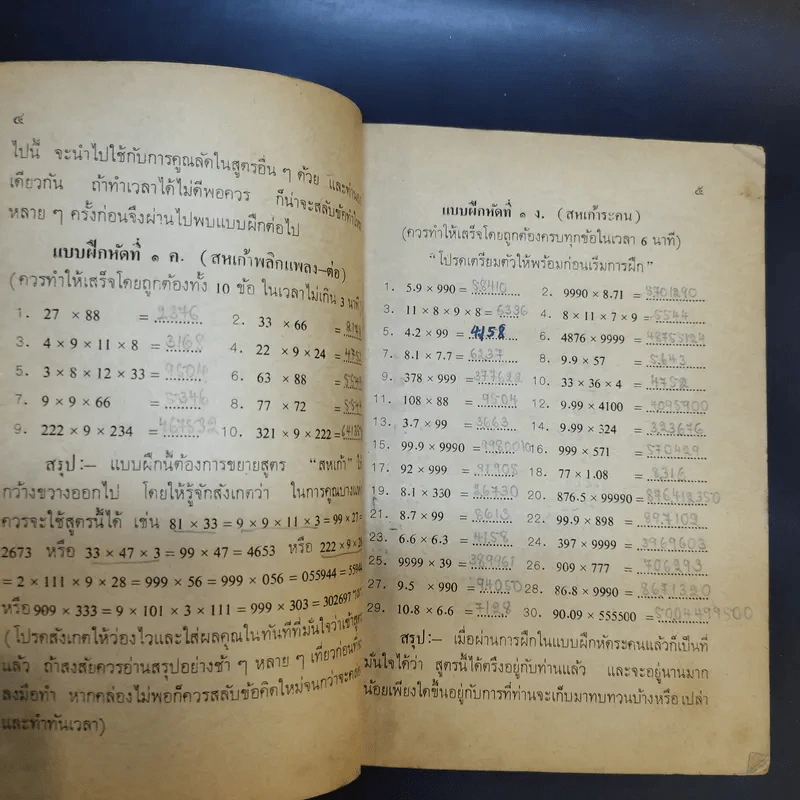 ๔
ไปนี้ จะนำไปใช้กับการคูณลัดในสูตรอื่น ๆ ด้วย และ
เดียวกัน ถ้าทำเวลาได้ไม่ดีพอควร ก็น่าจะสลับข้อทำใหม่
หลาย ๆ ครั้งก่อนจึงผ่านไปพบแบบฝึกต่อไป
แบบฝึกหัดที่ ๑ ค. (สหเก้าพลิกแพลง–ต่อ)
(ควรทำให้เสร็จโดยถูกต้องทั้ง 10 ข้อ ในเวลาไม่เกิน 3 นาที)
1. 27 × 88 = 2376 2. 33 × 66 =
3. 4 × 9 × 11 × 8 = 3168 4. 22 × 9 × 24 = 4752
5. 3 × 8 × 12 × 33 = 9504 6. 63 × 88 =
7. 9 × 9 × 66 = 5346 8. 77 × 72 =
9. 222 × 9 × 234 = 467532 10. 321 × 9 × 222 =
สรุป:– แบบฝึกนี้ต้องการขยายสูตร “สหเก้า” ให้
กว้างขวางออกไป โดยให้รู้จักสังเกตว่า ในการคูณบาง
ควรจะใช้สูตรนี้ได้ เช่น 81 × 33 = 9 × 9 × 11 × 3 = 99 × 27 =
2673 หรือ 33 × 47 × 3 = 99 × 47 = 4653 หรือ 222 × 9 × 28
= 2 × 111 × 9 × 28 = 999 × 56 = 999 × 056 = 055944 = 55944
หรือ 909 × 333 = 9 × 101 × 3 × 111 = 999 × 303 = 302697
(โปรดสังเกตให้ว่องไวและใส่ผลคูณในทันทีที่มั่นใจว่าเข้าสูตร
แล้ว ถ้าสงสัยควรอ่านสรุปอย่างช้า ๆ หลาย ๆ เที่ยวก่อนที่จะ
ลงมือทำ หากคล่องไม่พอก็ควรสลับข้อคิดใหม่จนกว่าจะคล่อง
และทำทันเวลา)
๕
แบบฝึกหัดที่ ๑ ง. (สหเก้าระคน)
(ควรทำให้เสร็จโดยถูกต้องครบทุกข้อในเวลา 6 นาที)
“โปรดเตรียมตัวให้พร้อมก่อนเริ่มการฝึก”
1. 5.9 × 990 = 58410 2. 9990 × 8.71 = 8701290
3. 11 × 8 × 9 × 8 = 6336 4. 8 × 11 × 7 × 9 = 5544
5. 4.2 × 99 = 4158 6. 4876 × 9999 = 48755124
7. 8.1 × 7.7 = 6237 8. 9.9 × 57 = 5643
9. 378 × 999 = 377622 10. 33 × 36 × 4 = 4752
11. 108 × 88 = 9504 12. 9.99 × 4100 = 4095900
13. 3.7 × 99 = 3663 14. 9.99 × 324 = 323676
15. 99.9 × 9990 = 9980010 16. 999 × 571 = 570429
17. 92 × 999 = 91908 18. 77 × 1.08 = 8316
19. 8.1 × 330 = 26730 20. 876.5 × 99990 = 876412350
21. 8.7 × 99 = 8613 22. 99.9 × 898 = 897102
23. 6.6 × 6.3 = 4158 24. 397 × 9999 = 3969603
25. 9999 × 39 = 389961 26. 909 × 777 = 706293
27. 9.5 × 990 = 94050 28. 86.8 × 9990 = 8671320
29. 10.8 × 6.6 = 7128 30. 90.09 × 555500 = 5004499500
สรุป:– เมื่อผ่านการฝึกในแบบฝึกหัดระคนแล้วก็เป็นที่
มั่นใจได้ว่า สูตรนี้ได้ตรึงอยู่กับท่านแล้ว และจะอยู่นานมาก
น้อยเพียงใดขึ้นอยู่กับการที่ท่านจะเก็บมาทบทวนบ้างหรือเปล่า